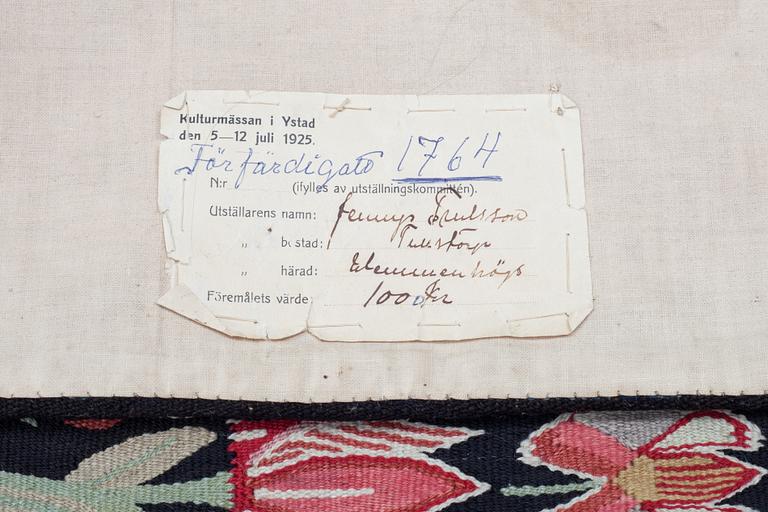 Kulturmässan i Ystad
den 5—12 juli 1925.
Förfärdigato 1764
N:r (ifylles av utställningskommittén).
Utställarens namn: Jennys Trulsson
„ bostad: Tullstorp
„ härad: Wemmenhögs
Föremålets värde: 1000 Kr